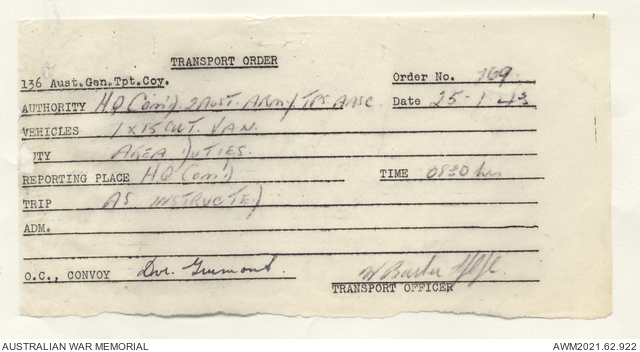 TRANSPORT ORDER
136 Aust.Gen.Tpt.Coy. Order No. 769.
AUTHORITY HQ Com'd 2 AUST. ARMY TPS AASC. Date 25-1-43
VEHICLES 1 X 15 CWT. VAN.
UTY AREA DUTIES.
REPORTING PLACE HQ Com'd TIME 0830 hrs
TRIP AS INSTRUCTED
ADM.
O.C., CONVOY Dvr.
TRANSPORT OFFICER
AUSTRALIAN WAR MEMORIAL AWM2021.62.922